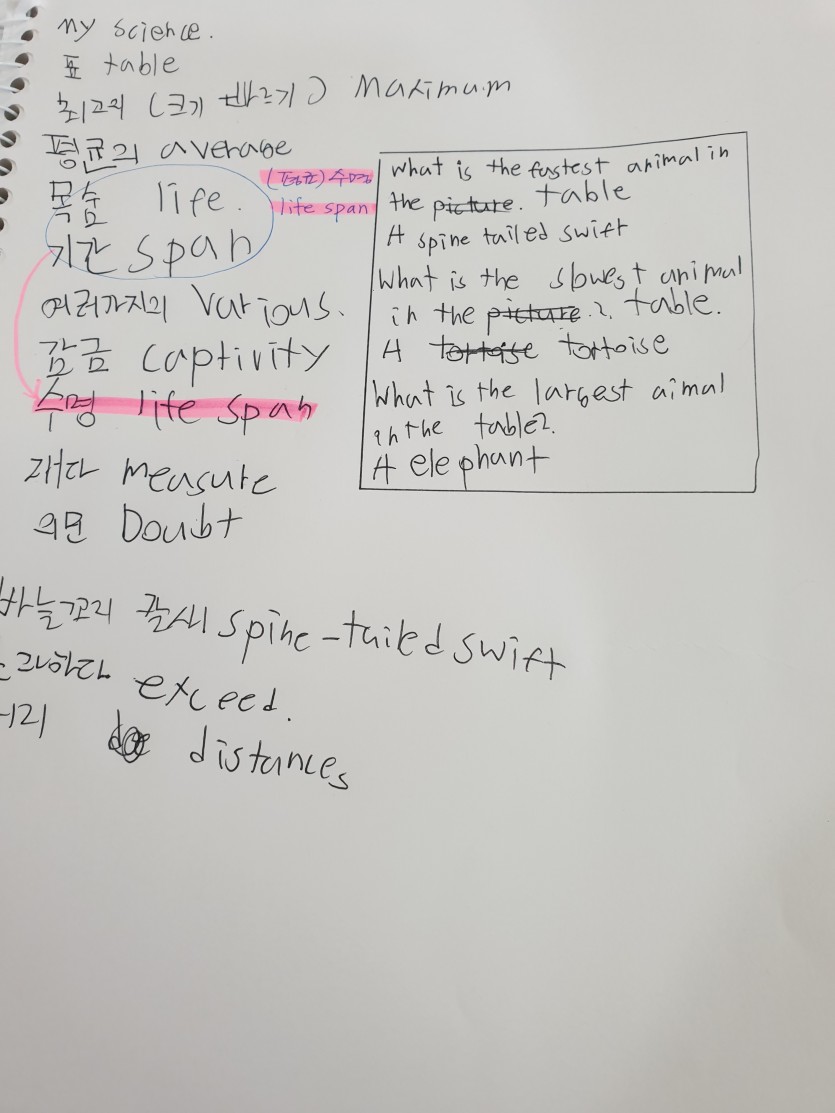 my science.
표 table
최고의 (크기 빠르기) Maximum
평균의 average
목숨 life.
기간 span
(평균) 수명
life span
여러가지의 Various.
감금 captivity
수명 life span
재다 measure
의문 Doubt
바늘꼬리 칼새 spine-tailed swift
초과하다 exceed.
거리 distances
What is the fastest animal in
the picture. table
A spine tailed swift
What is the slowest animal
in the picture.?. table.
A tortoise tortoise
What is the largest aimal
in the table?.
A elephant